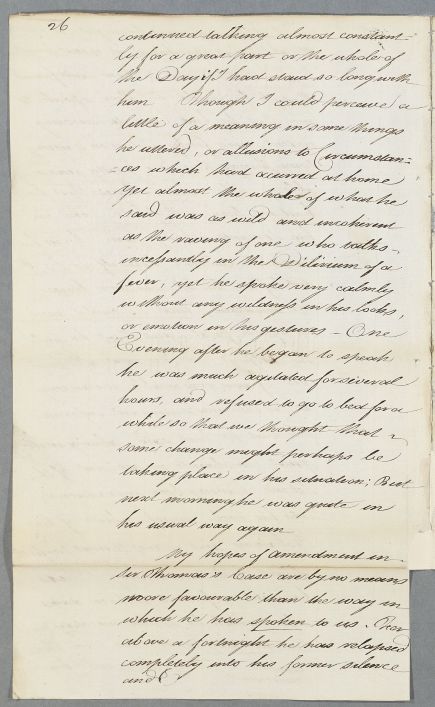 26
continued talking almost constant-
ly for a great part or the whole of
the Day if I had staid so long with
him Though I could perceive a
little of a meaning in some things
he uttered, or allusions to Circumstan-
ces which had occurred at home
yet almost the whole of what he
said was as wild and incoherent
as the raving of one who talks
incessantly in the Dilirium of a
fever, yet he spoke very calmly
without any wildness in his looks,
or emotion in his gestures - One
Evening after he began to speak
he was much agitated for several
hours, and refused to go to bed for a
while so that we thought that
some change might perhaps be
taking place in his situation; But
next morning he was quite in
his usual way again
My hopes of amendment in
Sir Thomas's Case are by no means
more favourable than the way in
which he has spoken to us. For
above a fortnight he has relapsed
completely into his former silence
and